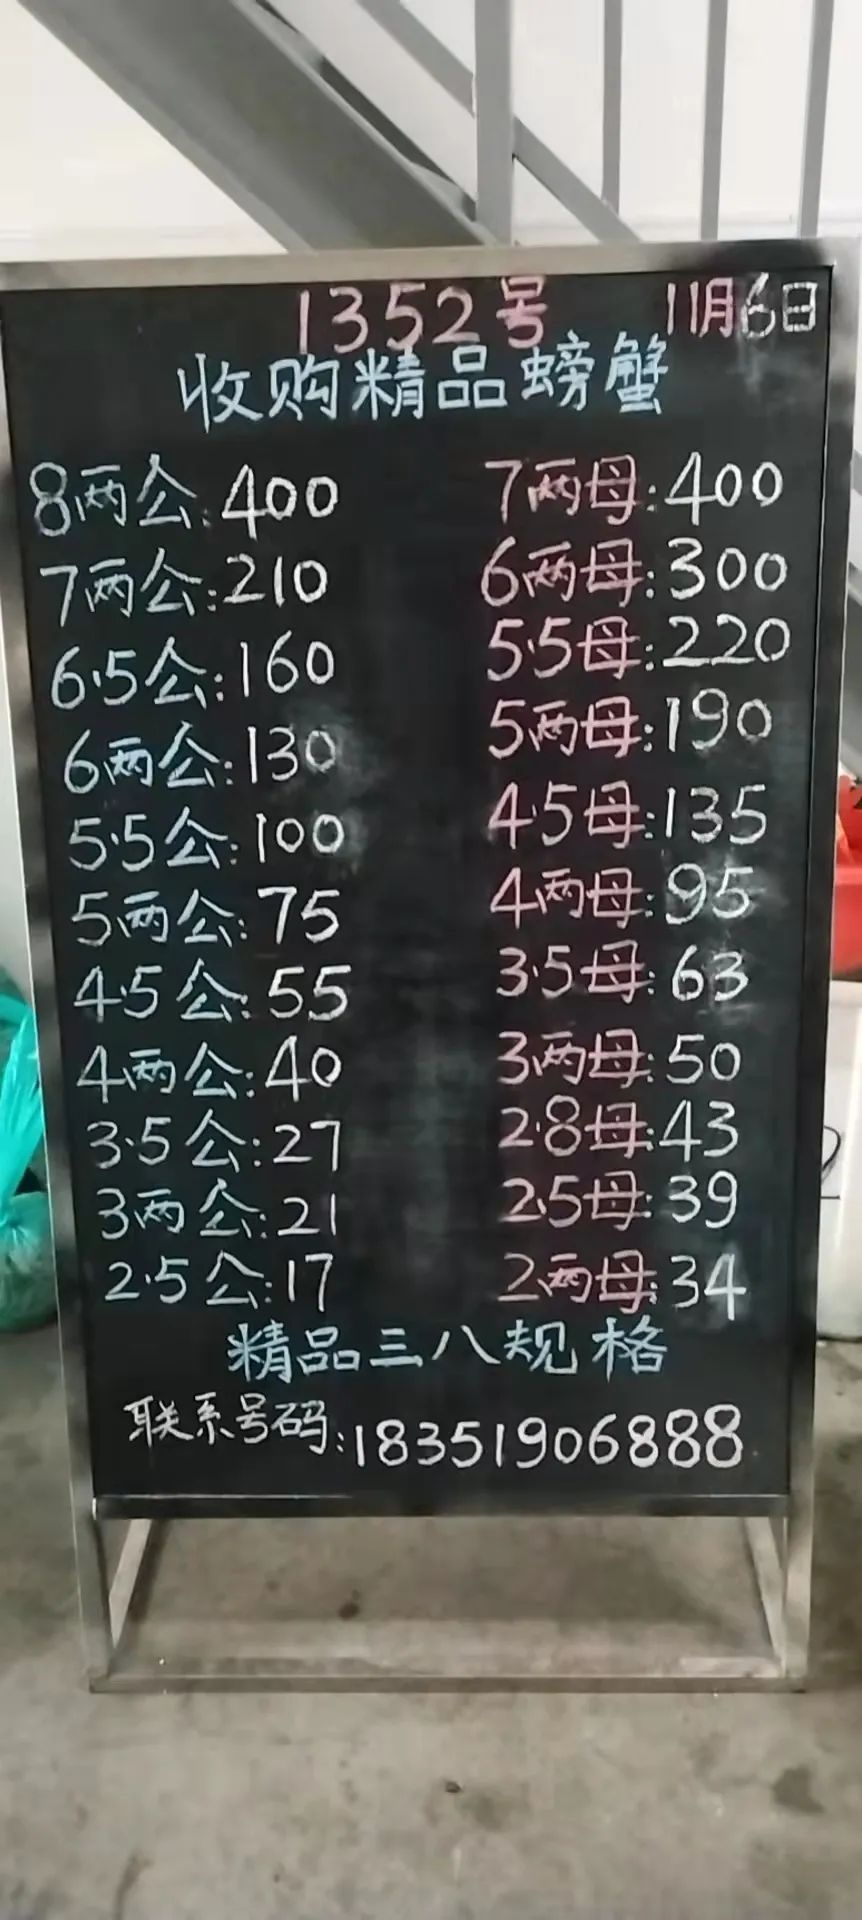 1352号 11月6日
收购精品螃蟹
8两公:400 7两母:400
7两公:210 6两母:300
6.5公:160 5.5母:220
6两公:130 5两母:190
5.5公:100 4.5母:135
5两公:75 4两母:95
4.5公:55 3.5母:63
4两公:40 3两母:50
3.5公:27 2.8母:43
3两公:21 2.5母:39
2.5公:17 2两母:34
精品三八规格
联系号码:18351906888